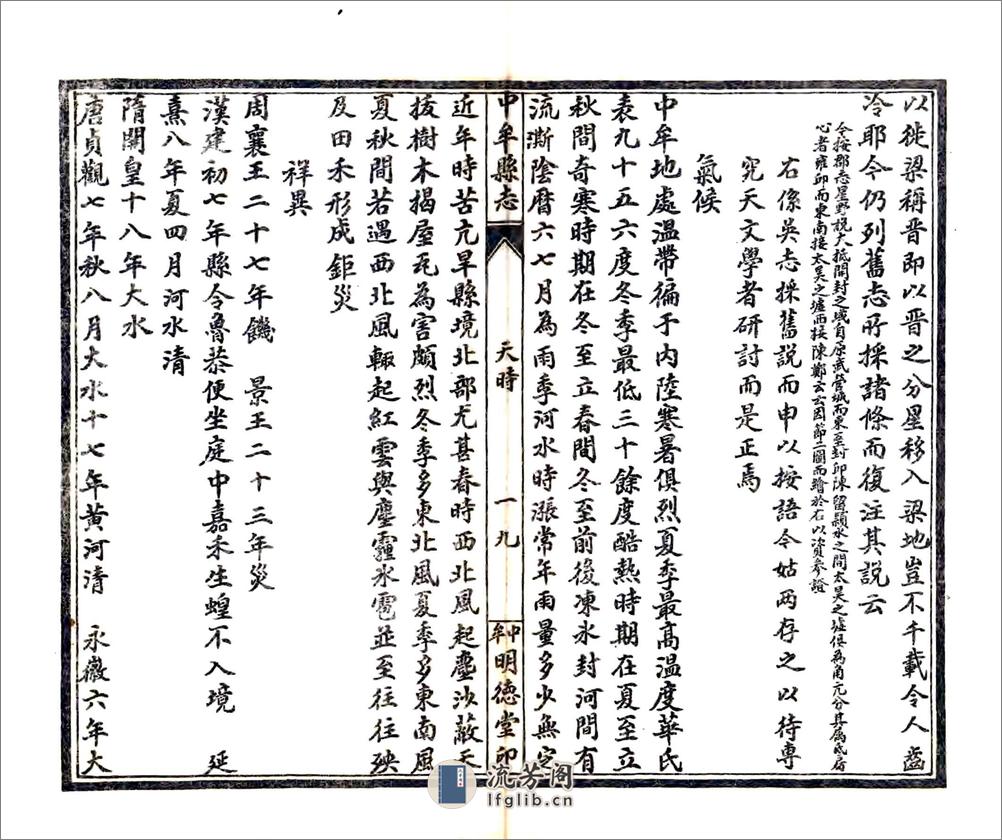 以徙梁稱晋即以晋之分星移入梁地豈不千載令人齒
冷耶今仍列舊志所採諸條而復注其說云
今按郡志星野說大抵開封之域自原武管城而東至封邱陳留潁水之間太昊之墟俱為角亢分其屬氐房
心者雍邱而東南接太昊之墟西接陳鄭云云因節二圖而贈於右以資參證
右係吳志採舊說而申以按語今姑两存之以待專
究天文學者研討而是正焉
氣候
中牟地處温帶徧于内陸寒暑俱烈夏季最高温度華氏
表九十五六度冬季最低三十餘度酷熱時期在夏至立
秋間奇寒時期在冬至立春間冬至前後凍氷封河間有
流澌陰曆六七月為雨季河水時漲常年雨量多少無定
中牟縣志
天時
一九
中牟明德堂印
近年時苦亢旱縣境北部尤甚春時西北風起塵沙蔽天
拔樹木揭屋瓦為害頗烈冬季多東北風夏季多東南風
夏秋間若遇西北風輙起紅雲與塵霾氷雹並至往往殃
及田禾形成鉅災
祥異
周襄王二十七年饑 景王二十三年災
漢建初七年縣令魯恭便坐庭中嘉禾生蝗不入境 延
熹八年夏四月河水清
隋開皇十八年大水
唐貞觀七年秋八月大水十七年黄河清 永徽六年大
流芳阁
lfglib.cn